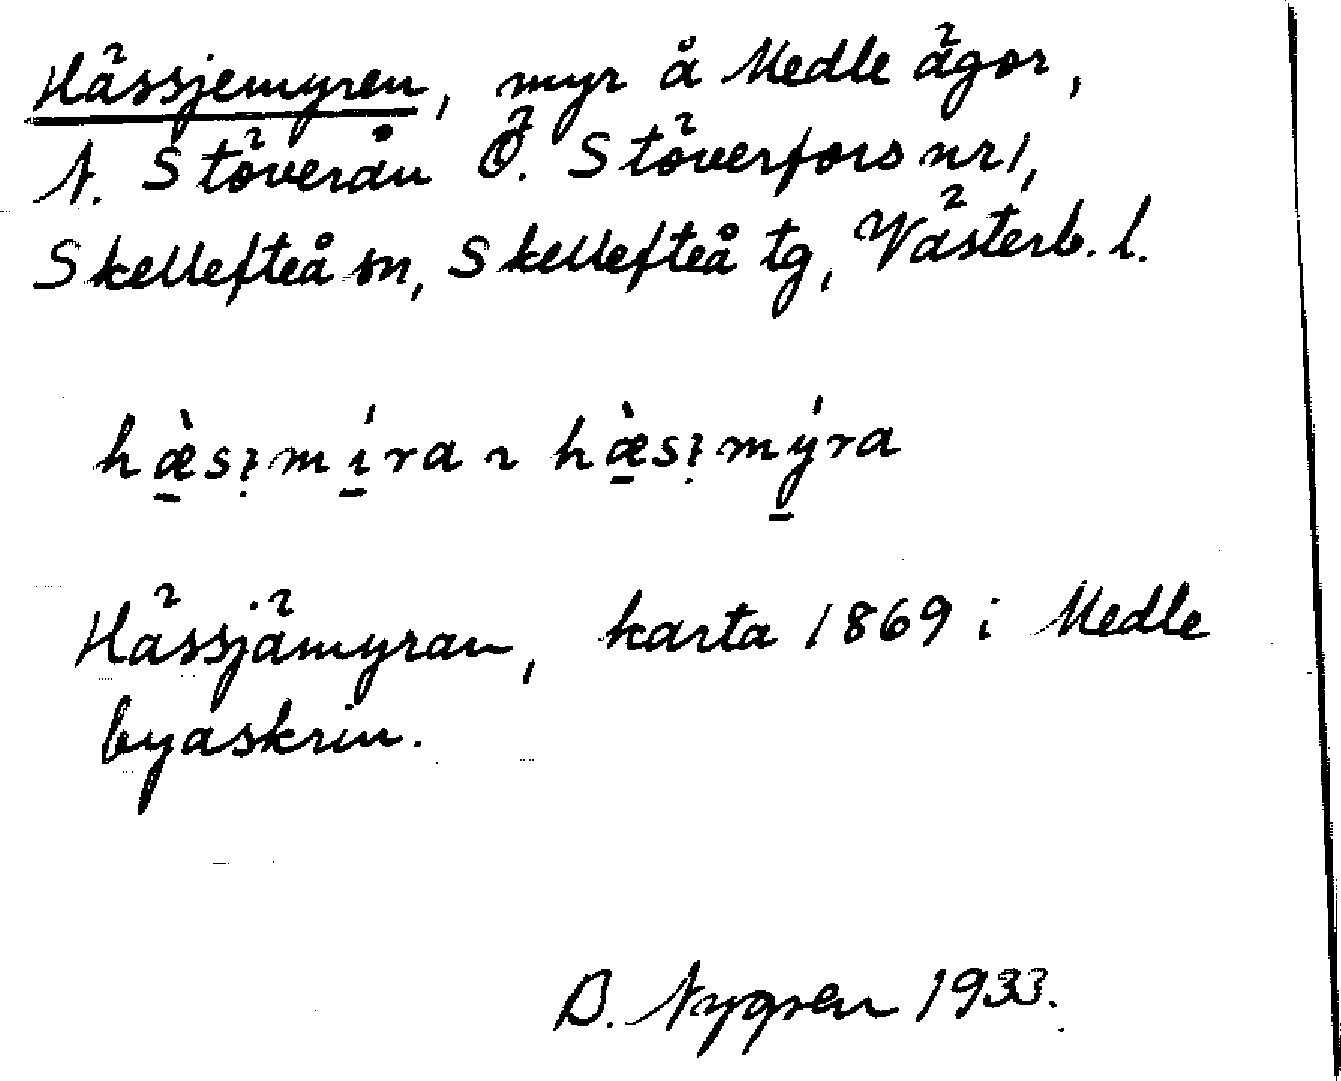 Hässjemyren, myr å Medle ägor,
N. Stöverån Ö. Stöverfors nr 1,
Skellefteå sn, Skellefteå tg, Västerb. l.
hæ̀sı̣míra ~ hæ̀sı̣mýra
Hässjämyran, karta 1869 i Medle
byaskrin.
B. Nygren 1933.